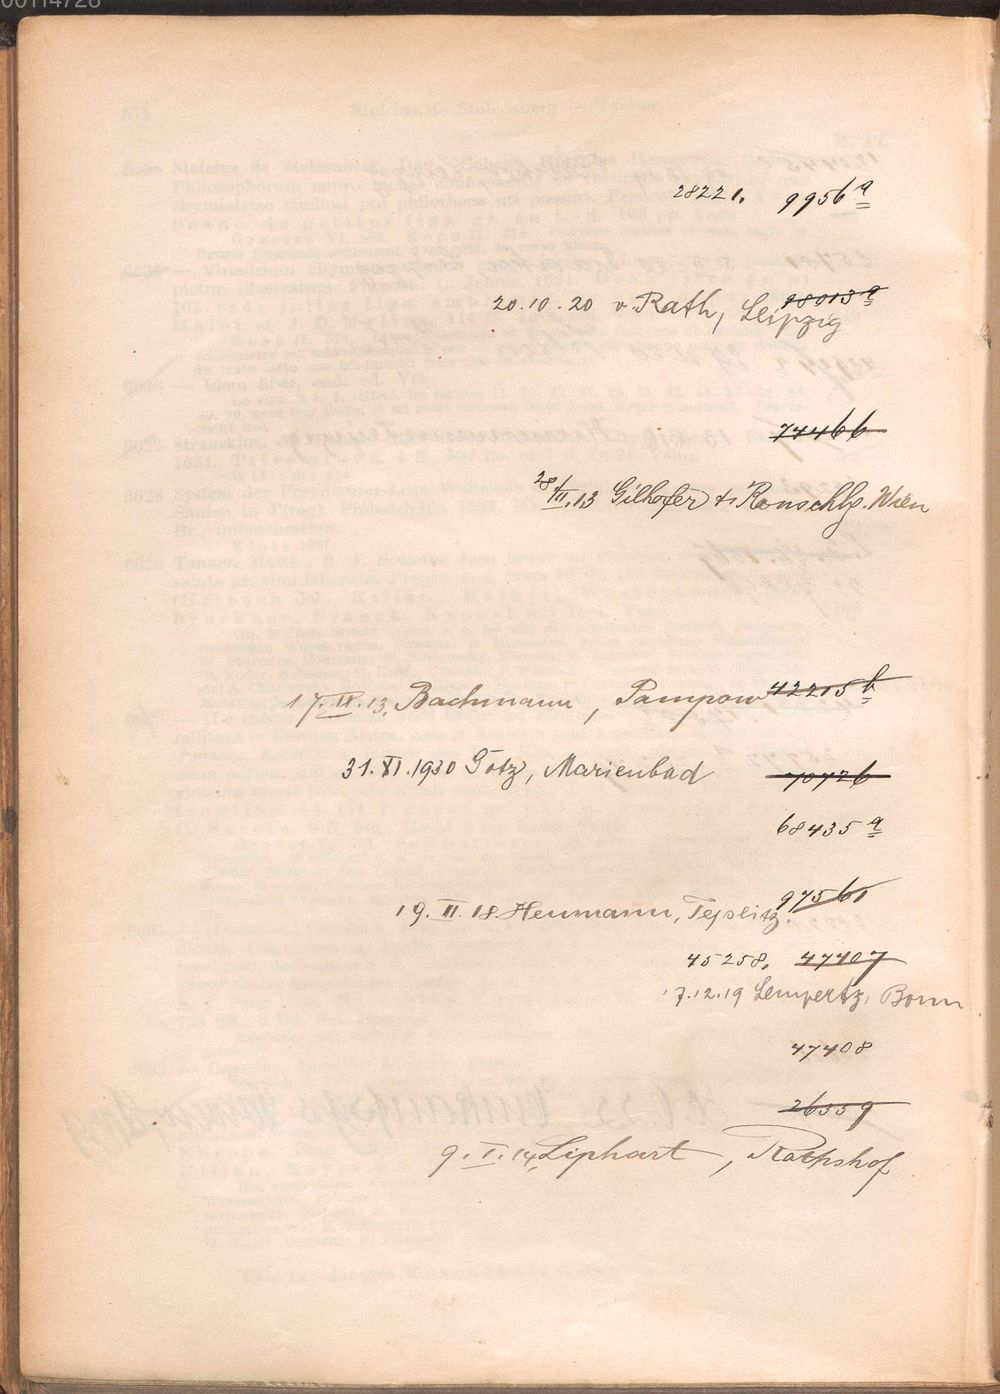 00114728
28221. 9956 a
98013 a
20.10.20 v. Rath, Leipzig
74466
28/VII.13 Gilhofer & Ranschbg. Wien
42215 b
17.IX.13. Bachmann, Pampow
31.VI.1930 Götz, Marienbad 70726
68435 a
97560
19.II.18. Heumann, Teplitz.
45258, 47407
17.12.19 Lempertz, Bonn
47408
26559
9.I.14. Liphart, Rathshof